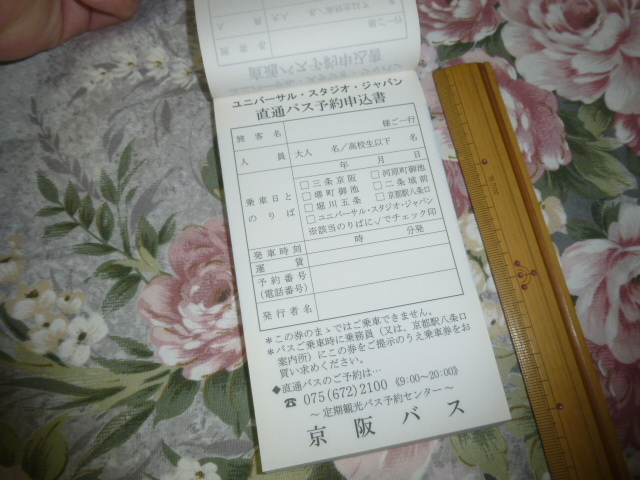 ユニバーサル・スタジオ・ジャパン
直通バス予約申込書
旅客名 様ご一行
人員 大人 名/高校生以下 名
年 月 日
乗車日とのりば
□三条京阪 □河原町御池
□堺町御池 □二条城前
□堀川五条 □京都駅八条口
□ユニバーサル・スタジオ・ジャパン
※該当のりばに√でチェック印
発車時刻 時 分発
運賃
予約番号
(電話番号)
発行者名
*この券のまゝではご乗車できません。
*バスご乗車時に乗務員(又は、京都駅八条口
案内所)にこの券をご提示のうえ乗車券をお
買い求めください。
◆直通バスのご予約は…
☎ 075(672)2100 《9:00~20:00》
~定期観光バス予約センター~
京阪バス